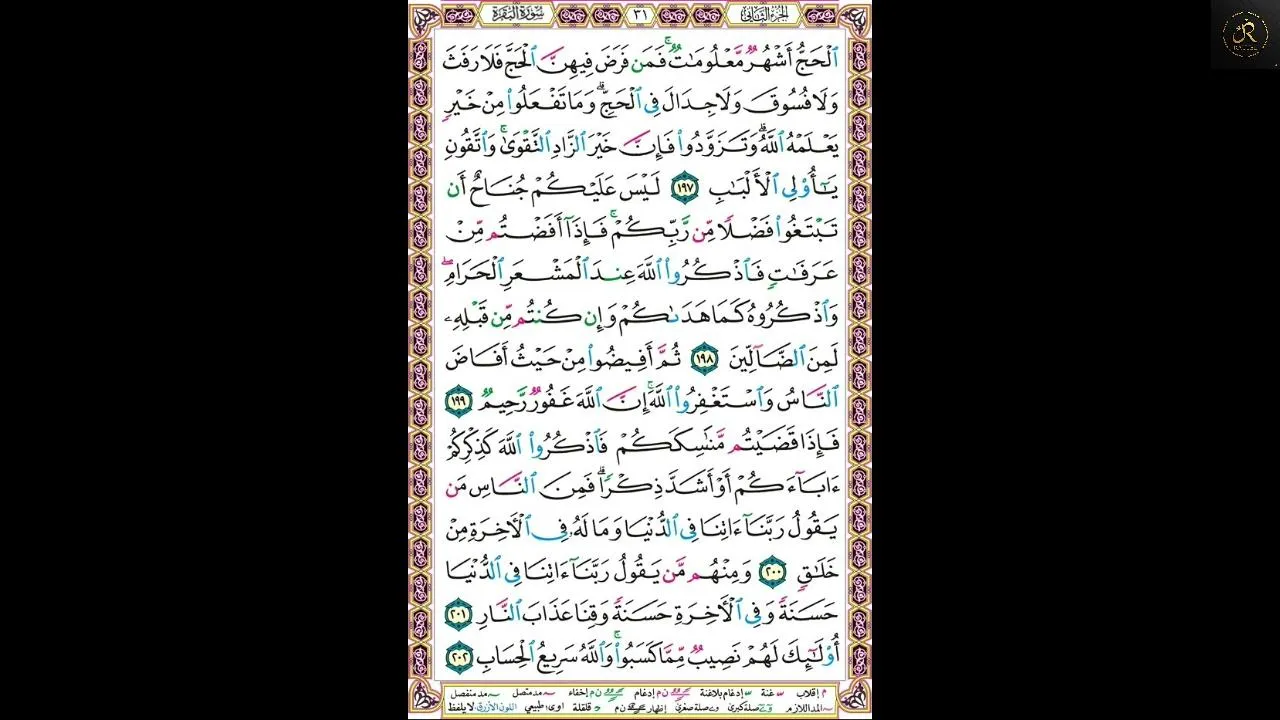 الجزء الثاني ٣١ سورة البقرة
ٱلْحَجُّ أَشْهُرٌ مَّعْلُومَـٰتٌ ۚ فَمَن فَرَضَ فِيهِنَّ ٱلْحَجَّ فَلَا رَفَثَ
وَلَا فُسُوقَ وَلَا جِدَالَ فِى ٱلْحَجِّ ۗ وَمَا تَفْعَلُوا۟ مِنْ خَيْرٍ
يَعْلَمْهُ ٱللَّهُ ۗ وَتَزَوَّدُوا۟ فَإِنَّ خَيْرَ ٱلزَّادِ ٱلتَّقْوَىٰ ۚ وَٱتَّقُونِ
يَـٰٓأُو۟لِى ٱلْأَلْبَـٰبِ ١٩٧ لَيْسَ عَلَيْكُمْ جُنَاحٌ أَن
تَبْتَغُوا۟ فَضْلًا مِّن رَّبِّكُمْ ۚ فَإِذَآ أَفَضْتُم مِّنْ
عَرَفَـٰتٍ فَٱذْكُرُوا۟ ٱللَّهَ عِندَ ٱلْمَشْعَرِ ٱلْحَرَامِ ۖ
وَٱذْكُرُوهُ كَمَا هَدَىٰكُمْ وَإِن كُنتُم مِّن قَبْلِهِۦ
لَمِنَ ٱلضَّآلِّينَ ١٩٨ ثُمَّ أَفِيضُوا۟ مِنْ حَيْثُ أَفَاضَ
ٱلنَّاسُ وَٱسْتَغْفِرُوا۟ ٱللَّهَ ۚ إِنَّ ٱللَّهَ غَفُورٌ رَّحِيمٌ ١٩٩
فَإِذَا قَضَيْتُم مَّنَـٰسِكَكُمْ فَٱذْكُرُوا۟ ٱللَّهَ كَذِكْرِكُمْ
ءَابَآءَكُمْ أَوْ أَشَدَّ ذِكْرًا ۗ فَمِنَ ٱلنَّاسِ مَن
يَقُولُ رَبَّنَآ ءَاتِنَا فِى ٱلدُّنْيَا وَمَا لَهُۥ فِى ٱلْأَخِرَةِ مِنْ
خَلَـٰقٍ ٢٠٠ وَمِنْهُم مَّن يَقُولُ رَبَّنَآ ءَاتِنَا فِى ٱلدُّنْيَا
حَسَنَةً وَفِى ٱلْأَخِرَةِ حَسَنَةً وَقِنَا عَذَابَ ٱلنَّارِ ٢٠١
أُو۟لَـٰٓئِكَ لَهُمْ نَصِيبٌ مِّمَّا كَسَبُوا۟ ۚ وَٱللَّهُ سَرِيعُ ٱلْحِسَابِ ٢٠٢
م إقلاب غنة إدغام بلاغنة ن م إدغام ن م إخفاء مد متصل مد منفصل
المد اللازم صلة كبرى صلة صغرى إظهار ن م قلقلة اوى طبيعي اللون الأزرق لا يلفظ